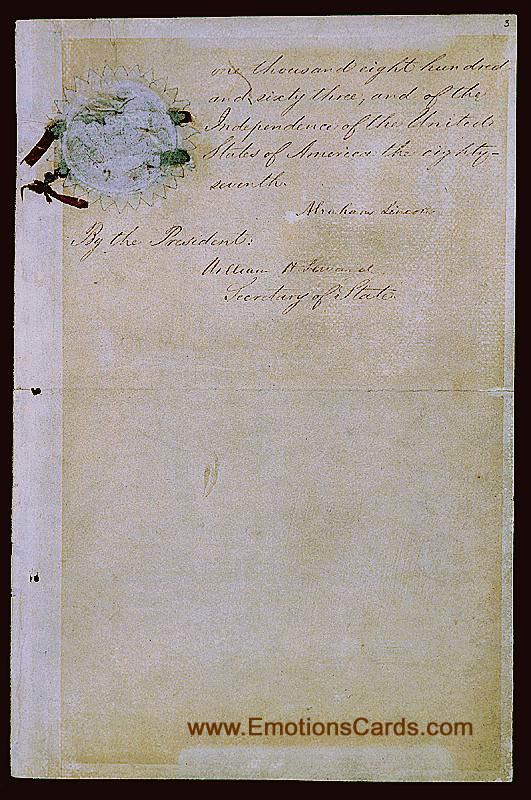 3
one thousand eight hundred
and sixty three, and of the
Independence of the United
States of America the eighty-
seventh.
Abraham Lincoln
By the President:
William H. Seward
Secretary of State
www.EmotionsCards.com